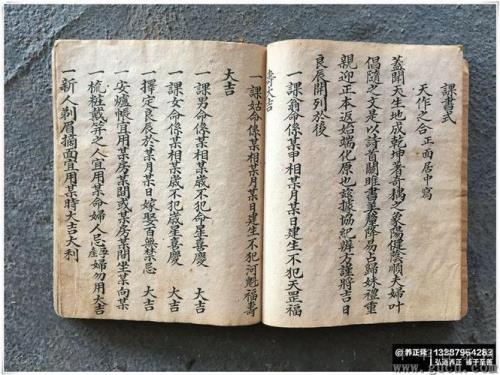 課書式
天作之合 正面居中寫
蓋聞天生地成乾坤著奇耦之象陽健陰順夫婦叶
倡隨之文是以詩首關雎書美釐降易占歸妹禮重
親迎正本返始端化原也茲據協紀辨方謹將吉日
良辰開列於後
一課翁命係某甲相某月某日建生不犯天罡福
壽大吉
一課姑命係某相某月某日建生不犯河魁福壽
大吉
一課男命係某相某歲不犯命星喜慶 大吉
一課女命係某相某歲不犯歲星喜慶 大吉
一擇定良辰於某月某日嫁娶百無禁忌 大吉
一安爐帳宜用某房某間或某房某間坐某向某
一梳粧戴笄之人宜用某命婦人忌孕產婦勿用大吉
一新人剃眉摘面宜用某時大吉大利
@养正缘 13287964282
弘道养正 臻于至善